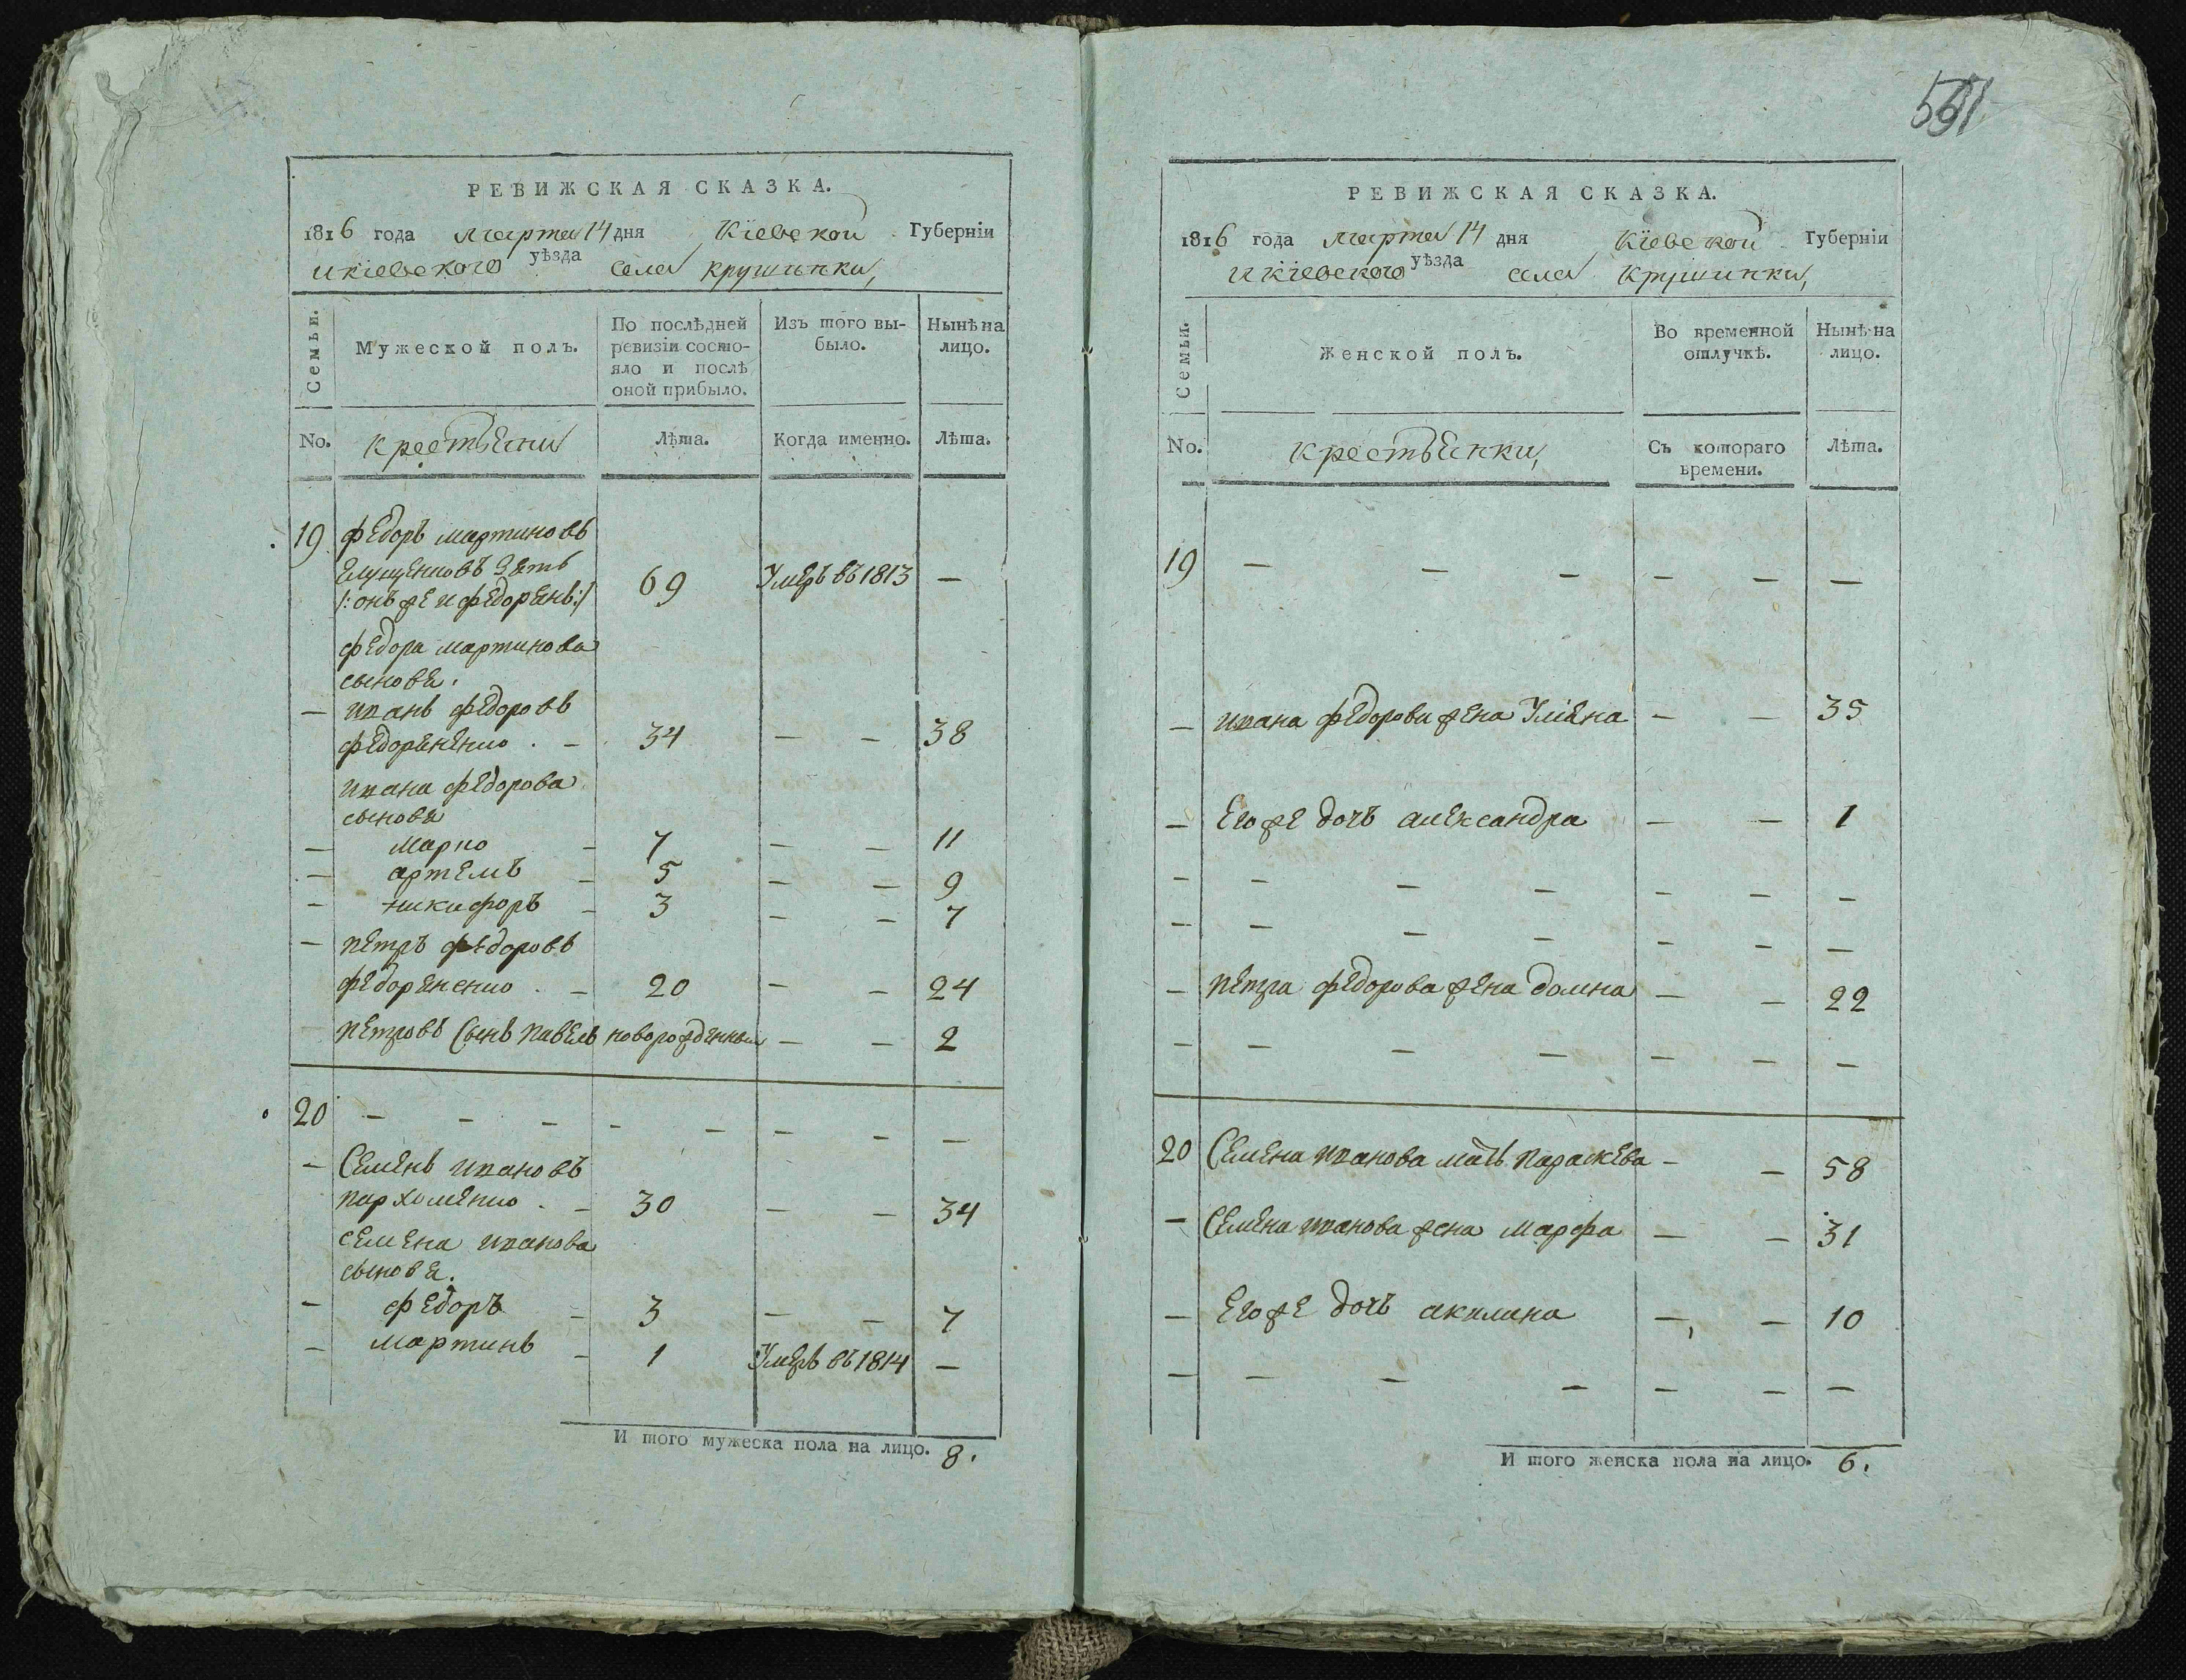 РЕВИЖСКАЯ СКАЗКА.
1816 года марта 14 дня Кіевской Губерніи
и кіевского уѣзда села крушинки,
Семьи.
Мужеской полъ.
По послѣдней ревизіи состояло и послѣ оной прибыло.
Изъ того выбыло.
Нынѣ на лицо.
No.
крестьяни
Лѣта.
Когда именно.
Лѣта.
19 федоръ мартиновъ
зять
/: онъ же и федоренъ :/ 69 Умеръ въ 1813 —
федора мартинова
синовя.
— иванъ федоровъ
федоренко . — 34 — — 38
ивана федорова
синовя
— марко — 7 — — 11
— артемъ — 5 — — 9
— никифоръ — 3 — — 7
— петръ федоровъ
федоренко . — 20 — — 24
петровъ сынъ павелъ новорожденный — — 2
20 — — — — — — — —
— Семенъ ивановъ
пархоменко . — 30 — — 34
семена иванова
синовя.
— федоръ — 3 — — 7
— мартинъ — 1 Умеръ въ 1814 —
И того мужеска пола на лицо. 8.
591
РЕВИЖСКАЯ СКАЗКА.
1816 года марта 14 дня Кіевской Губерніи
и кіевского уѣзда села крушинки,
Семьи.
Женской полъ.
Во временной отлучкѣ.
Нынѣ на лицо.
No.
крестьянки,
Съ котораго времени.
Лѣта.
19 — — — — — —
— ивана федорови жена Уляна — — 35
— Его же дочъ александра — — 1
— — — — — — —
— — — — — — —
— петра федорова жена домна — — 22
— — — — — — —
20 Семена иванова мать параскева — — 58
— Семена иванова жена марфа — — 31
— Его же дочъ акилина — — 10
— — — — — — —
И того женска пола на лицо. 6.